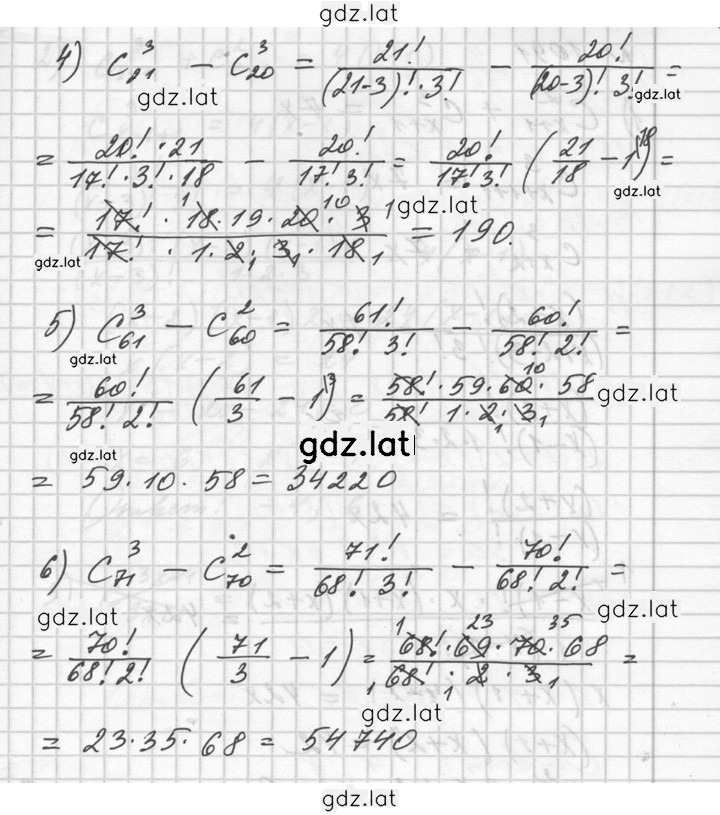 gdz.lat
4) C₂₁³ − C₂₀³ = 21!/((21-3)!·3!) − 20!/((20-3)! 3!) =
gdz.lat gdz.lat
= 20!·21/(17!·3!·18) − 20!/(17! 3!) = 20!/(17! 3!) (21/18 − 1\¹⁸) =
gdz.lat gdz.lat
= 17!·18·19·20·3/(17!·1·2·3·18) = 190.
gdz.lat
5) C₆₁³ − C₆₀² = 61!/(58! 3!) − 60!/(58! 2!) =
gdz.lat
= 60!/(58! 2!) (61/3 − 1\³) = 58!·59·60·58/(58! 1·2·3)
gdz.lat
gdz.lat
= 59·10·58 = 34220
gdz.lat
6) C₇₁³ − C₇₀² = 71!/(68! 3!) − 70!/(68! 2!) =
gdz.lat gdz.lat
= 70!/(68! 2!) (71/3 − 1) = 68!·69·70·68/(68!·2·3) =
gdz.lat
= 23·35·68 = 54740
gdz.lat